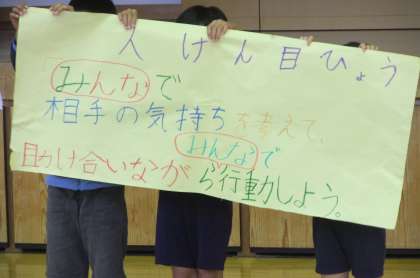 人けん目ひょう
「みんなで
相手の気持ちを考えて、
みんなで
助け合いながら行動しよう。